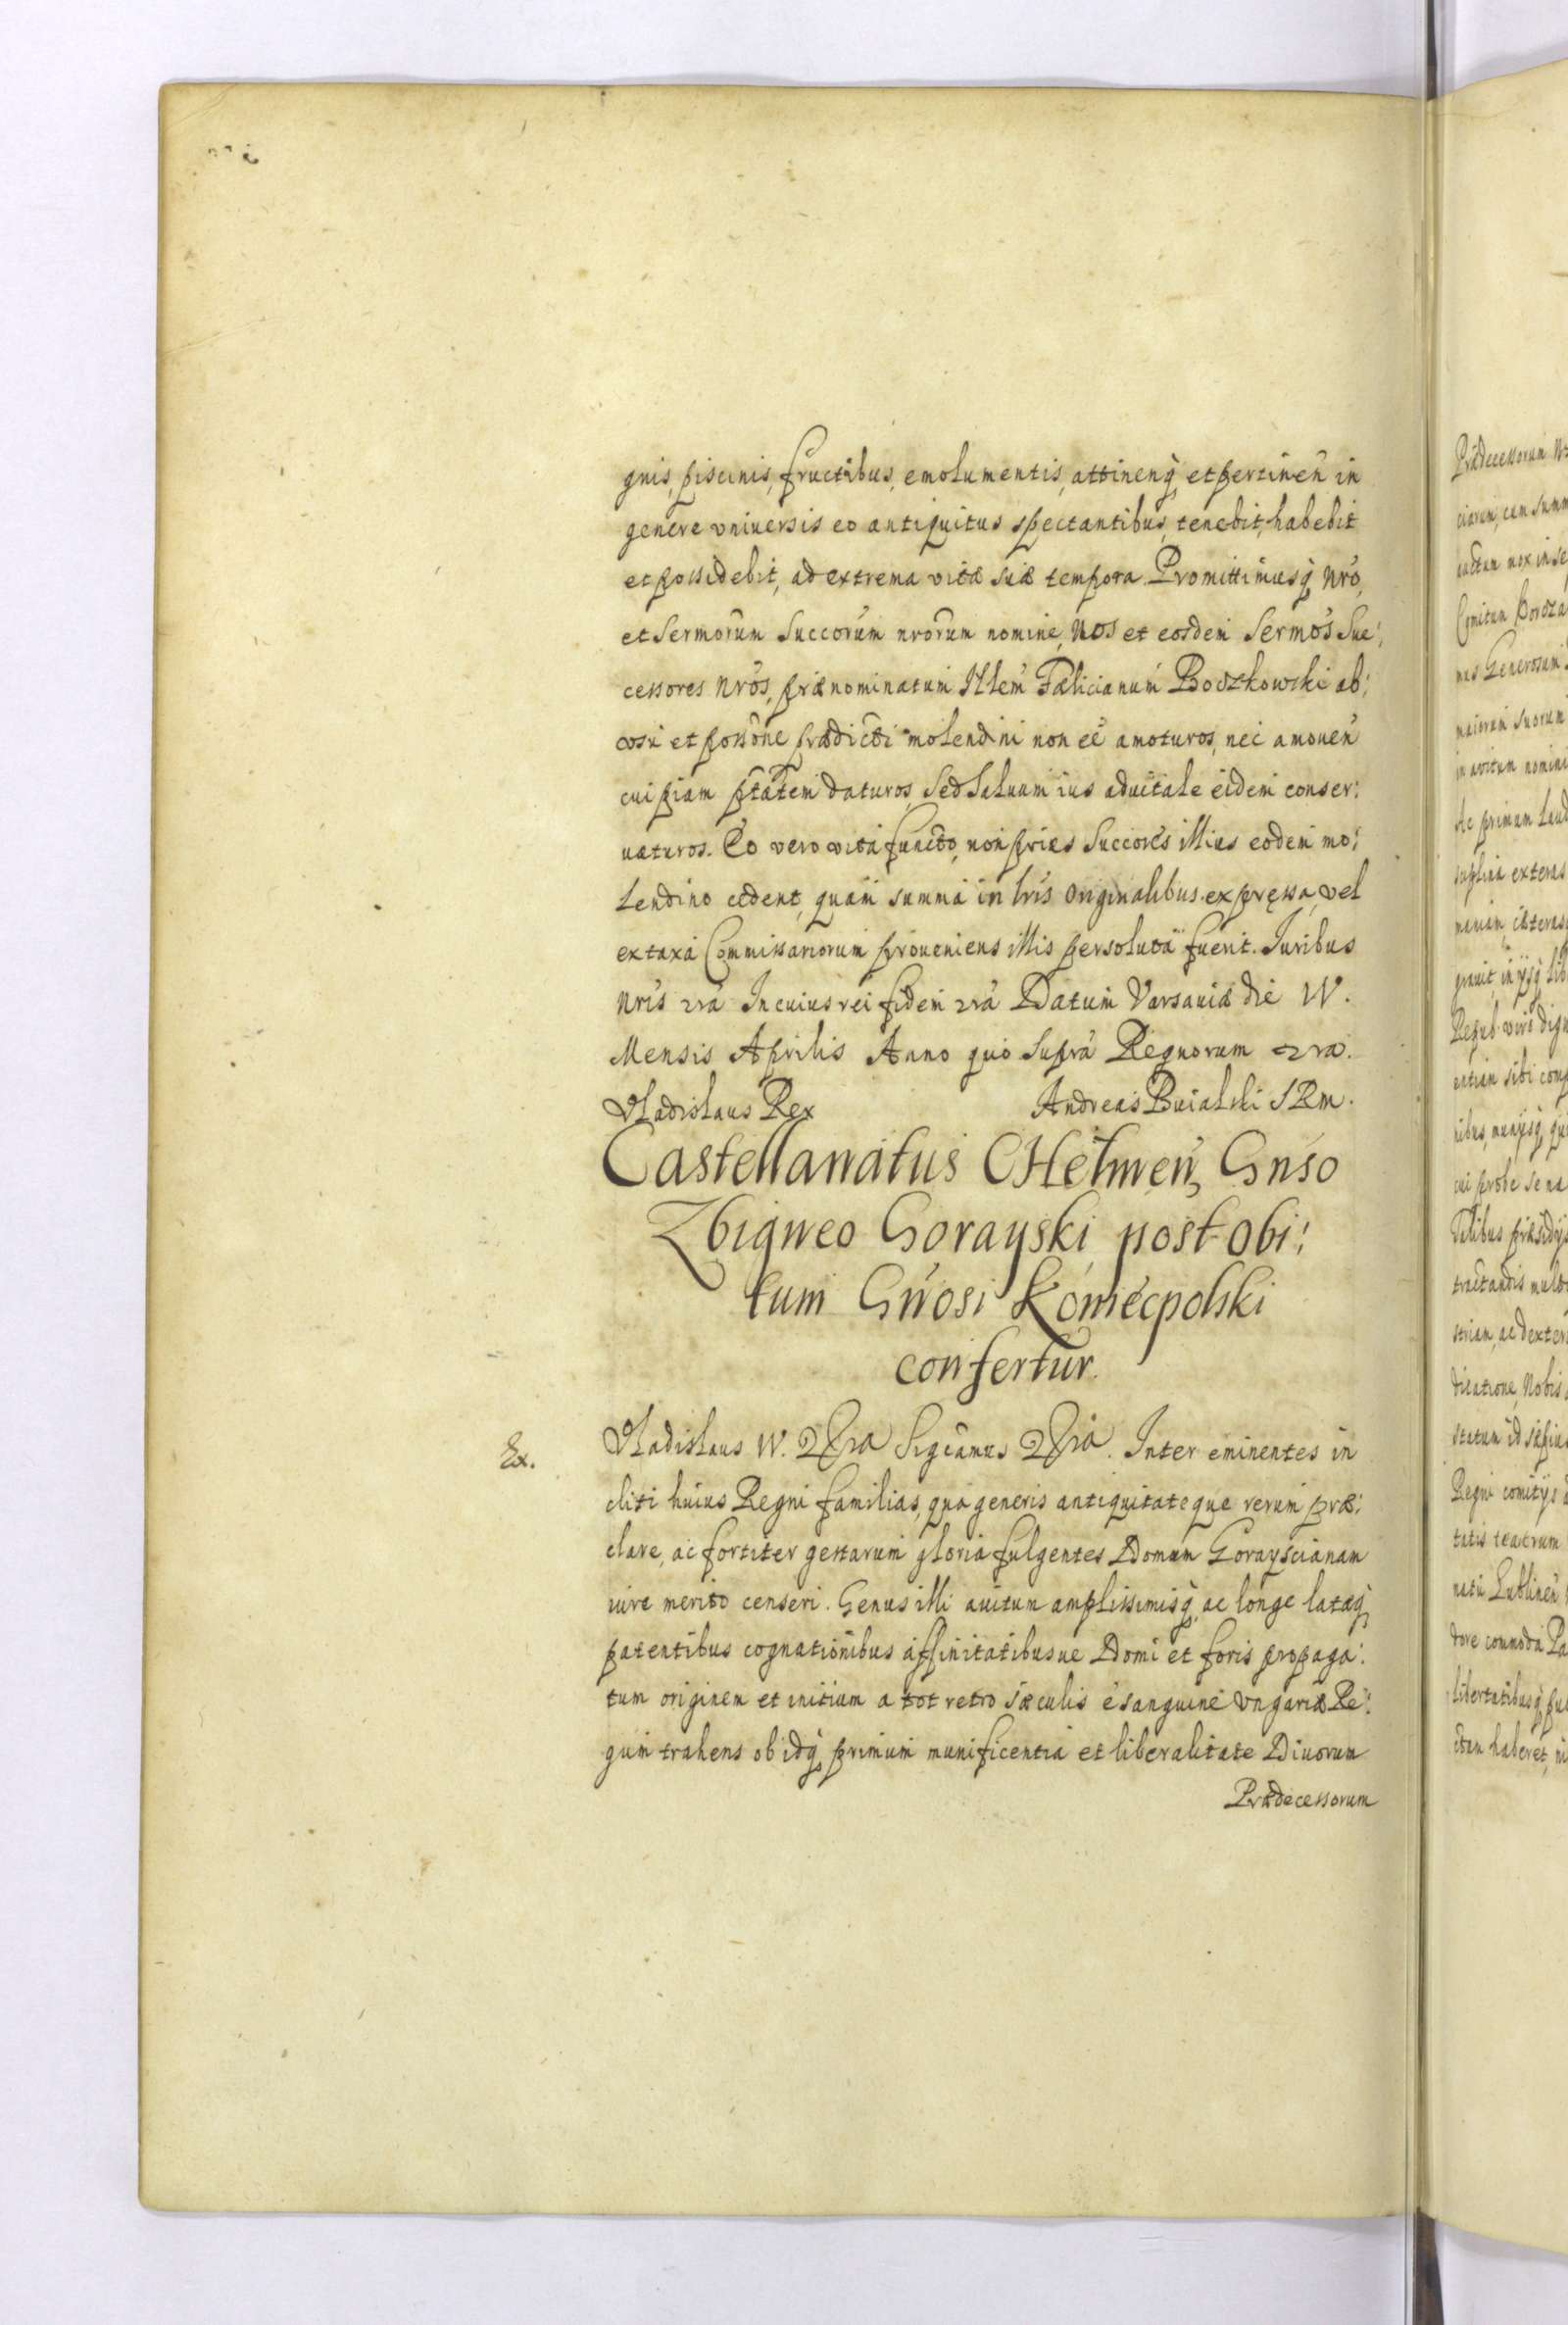 gnis, piscinis, fructibus, emolumentis, attinenq̀, et pertineñ in
genere vniuersis eo antiquitus spectantibus, tenebit, habebit
et possidebit, ad extrema vitæ suæ tempora. Promittimusq̀, nro̅,
et Sermorum Succorum nrorum nomine, Nos et eosdem Sermos Suc:
cessores nros, prænominatum Illem Fælicianum Boczkowski ab:
vosu et possone prædicti molendini non eē amoturos, nec amouen̄
cuipiam ptātem daturos, Sed Saluum ius aduitale eidem conser:
uaturos. Eo vero vita functo, non prius Succores illius eodem mo:
lendino cedent, quam summa in lris Originalibus expressa, vel
ex taxa Commissariorum proueniens illis persoluta fuerit. Iuribus
nris &ra In cuius rei fidem &ra Datum Varsaviæ die IV.
Mensis Aprilis Anno quo Supra Regnorum &ra.
Vladislaus Rex Andreas Buialski SRm.
Castellanatus CHelmeñ, Gnso
Zbigneo Gorayski post obi:
tum Gnosi Koniecpolski
confertur.
Ex. Vladislaus IV. &ra Sigcamus &ra. Inter eminentes in
cliti huius Regni familias, qua generis antiquitate qua rerum præ:
clare, ac fortiter gestarum gloria fulgentes Domum Gorayscianam
iure merito censeri. Genus illi auitum amplissimisq̀, ac longe lateq̀
patentibus cognationibus affinitatibusue Domi et foris propaga:
tum originem et initium a tot retro sæculis è sanguine Vngariæ Re:
gum trahens ob idq̀, primum munificentia et liberalitate Diuorum
Prædecessorum